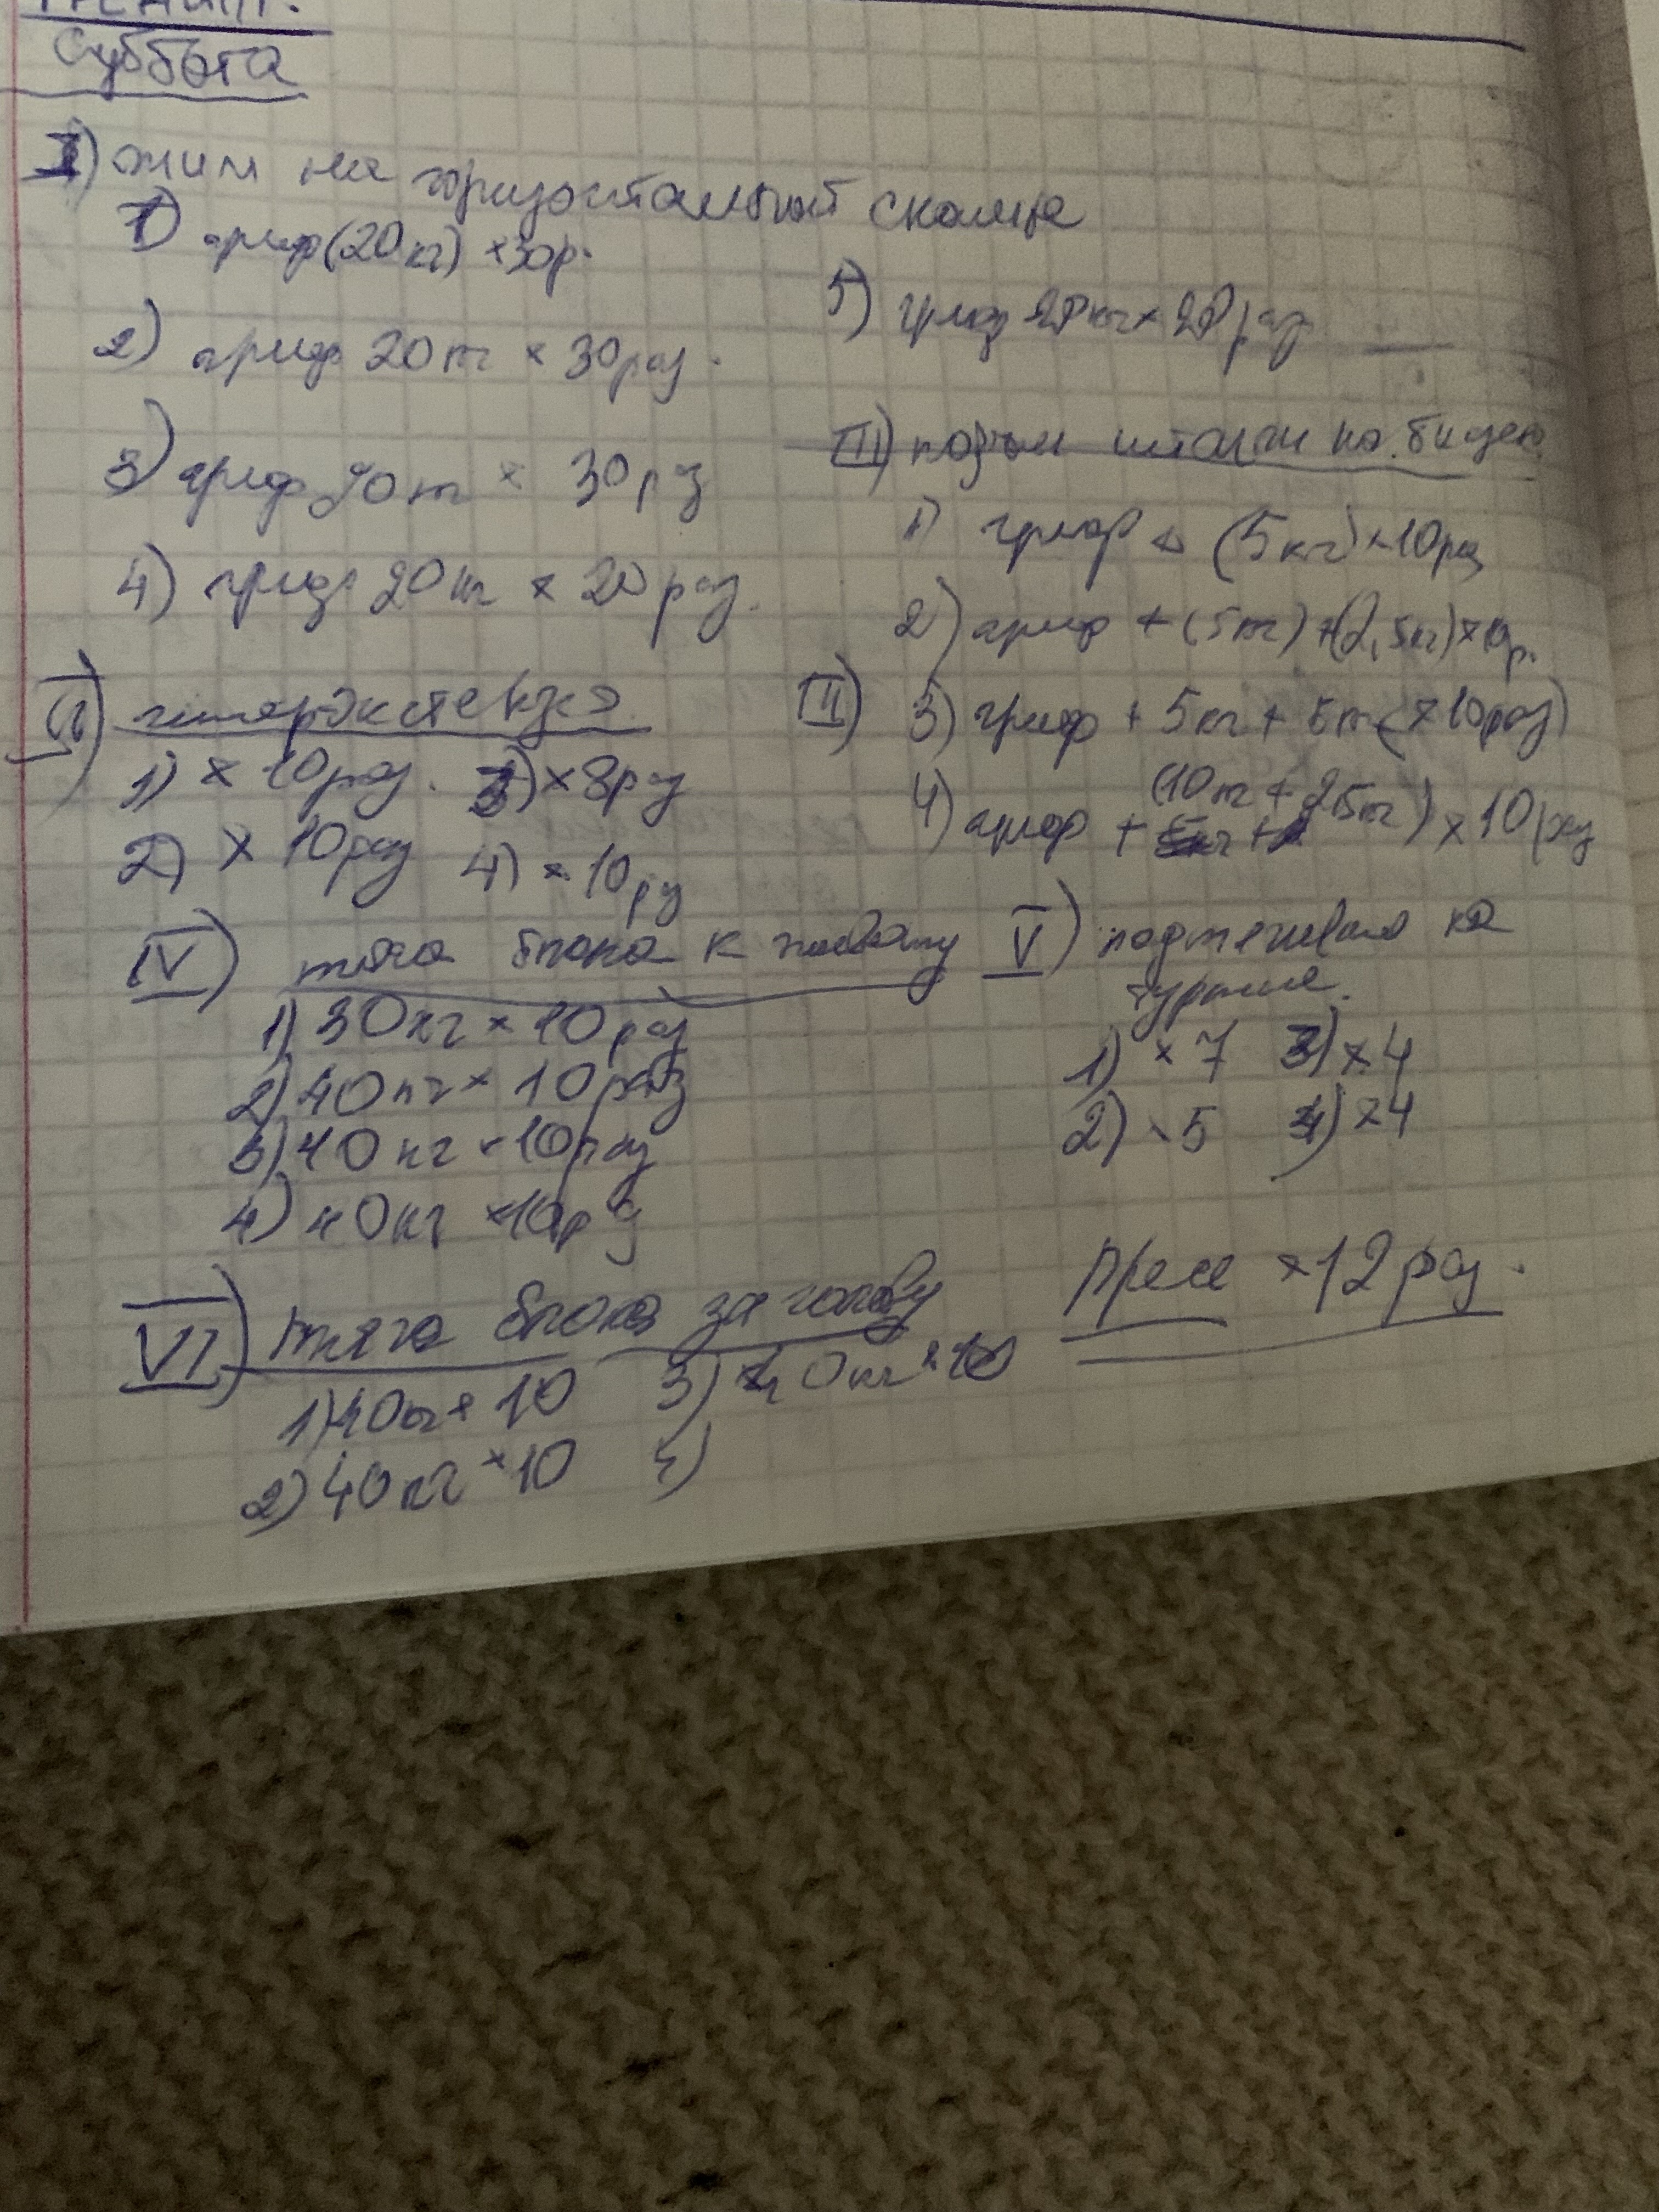 Суббота
I) жим на горизонтальной скамье
1) гриф (20кг) ×30р.
2) гриф 20кг × 30раз.
3) гриф 20кг × 30раз
4) гриф 20кг × 20 раз.
5) гриф 20кг × 20 раз
II) гиперэкстензия
1) × 10раз. 3) × 8раз
2) × 10раз 4) × 10раз
III) подъём штанги на бицепс
1) гриф + (5кг) × 10раз
2) гриф + (5кг) + (2,5кг) × 10р.
III) 3) гриф + 5кг + 5кг (×10раз)
4) гриф + (10кг + 2,5кг) × 10 раз
IV) тяга блока к поясу
1) 30кг × 10 раз
2) 40кг × 10 раз
3) 40кг × 10раз
4) 40кг ×10раз
V) подтягивания на
турнике.
1) × 7 3) × 4
2) × 5 4) × 4
VI) тяга блока за голову
1) 40кг × 10 3) 40кг × 10
2) 40кг × 10 4)
Пресс × 12 раз.